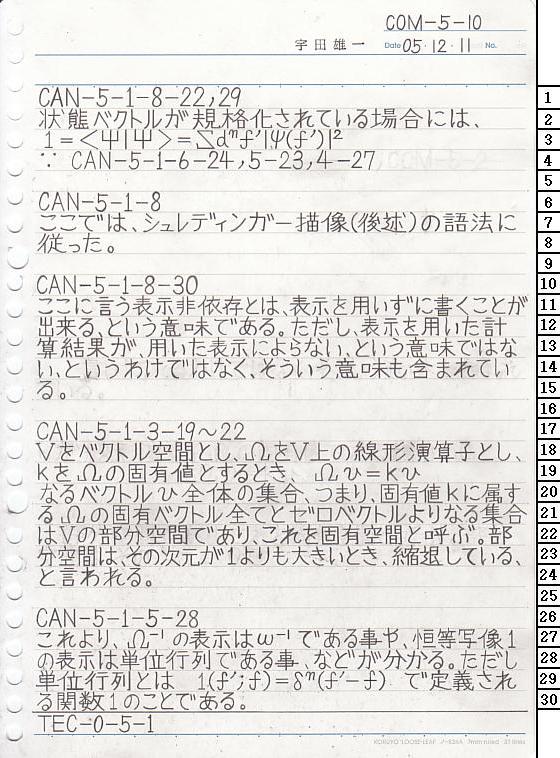 COM-5-10
宇田雄一 Date 05・12・11 No.
CAN-5-1-8-22,29
状態ベクトルが規格化されている場合には、
1=<Ψ|Ψ>=∑dⁿf'|Ψ(f')|²
∵ CAN-5-1-6-24,5-23,4-27
CAN-5-1-8
ここでは、シュレディンガー描像(後述)の語法に
従った。
CAN-5-1-8-30
ここに言う表示非依存とは、表示を用いずに書くことが
出来る、という意味である。ただし、表示を用いた計
算結果が、用いた表示によらない、という意味ではな
い、というわけではなく、そういう意味も含まれてい
る。
CAN-5-1-3-19〜22
Vをベクトル空間とし、ΩをV上の線形演算子とし、
kをΩの固有値とするとき、 Ωυ=kυ
なるベクトルυ全体の集合、つまり、固有値kに属す
るΩの固有ベクトル全てとゼロベクトルよりなる集合
はVの部分空間であり、これを固有空間と呼ぶ。部
分空間は、その次元が1よりも大きいとき、縮退している、
と言われる。
CAN-5-1-5-28
これより、Ω⁻¹の表示はω⁻¹である事や、恒等写像1
の表示は単位行列である事、などが分かる。ただし
単位行列とは 1(f';f)=δⁿ(f'-f) で定義され
る関数1のことである。
TEC-0-5-1
KOKUYO LOOSE-LEAF ノ-836A 7mm ruled 31 lines
1
2
3
4
5
6
7
8
9
10
11
12
13
14
15
16
17
18
19
20
21
22
23
24
25
26
27
28
29
30